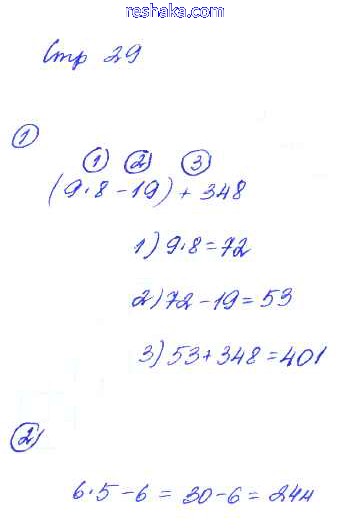 reshaka.com
Стр 29
1
1 2 3
(9·8-19)+348
1) 9·8=72
2) 72-19=53
3) 53+348=401
2
6·5-6 = 30-6 = 24